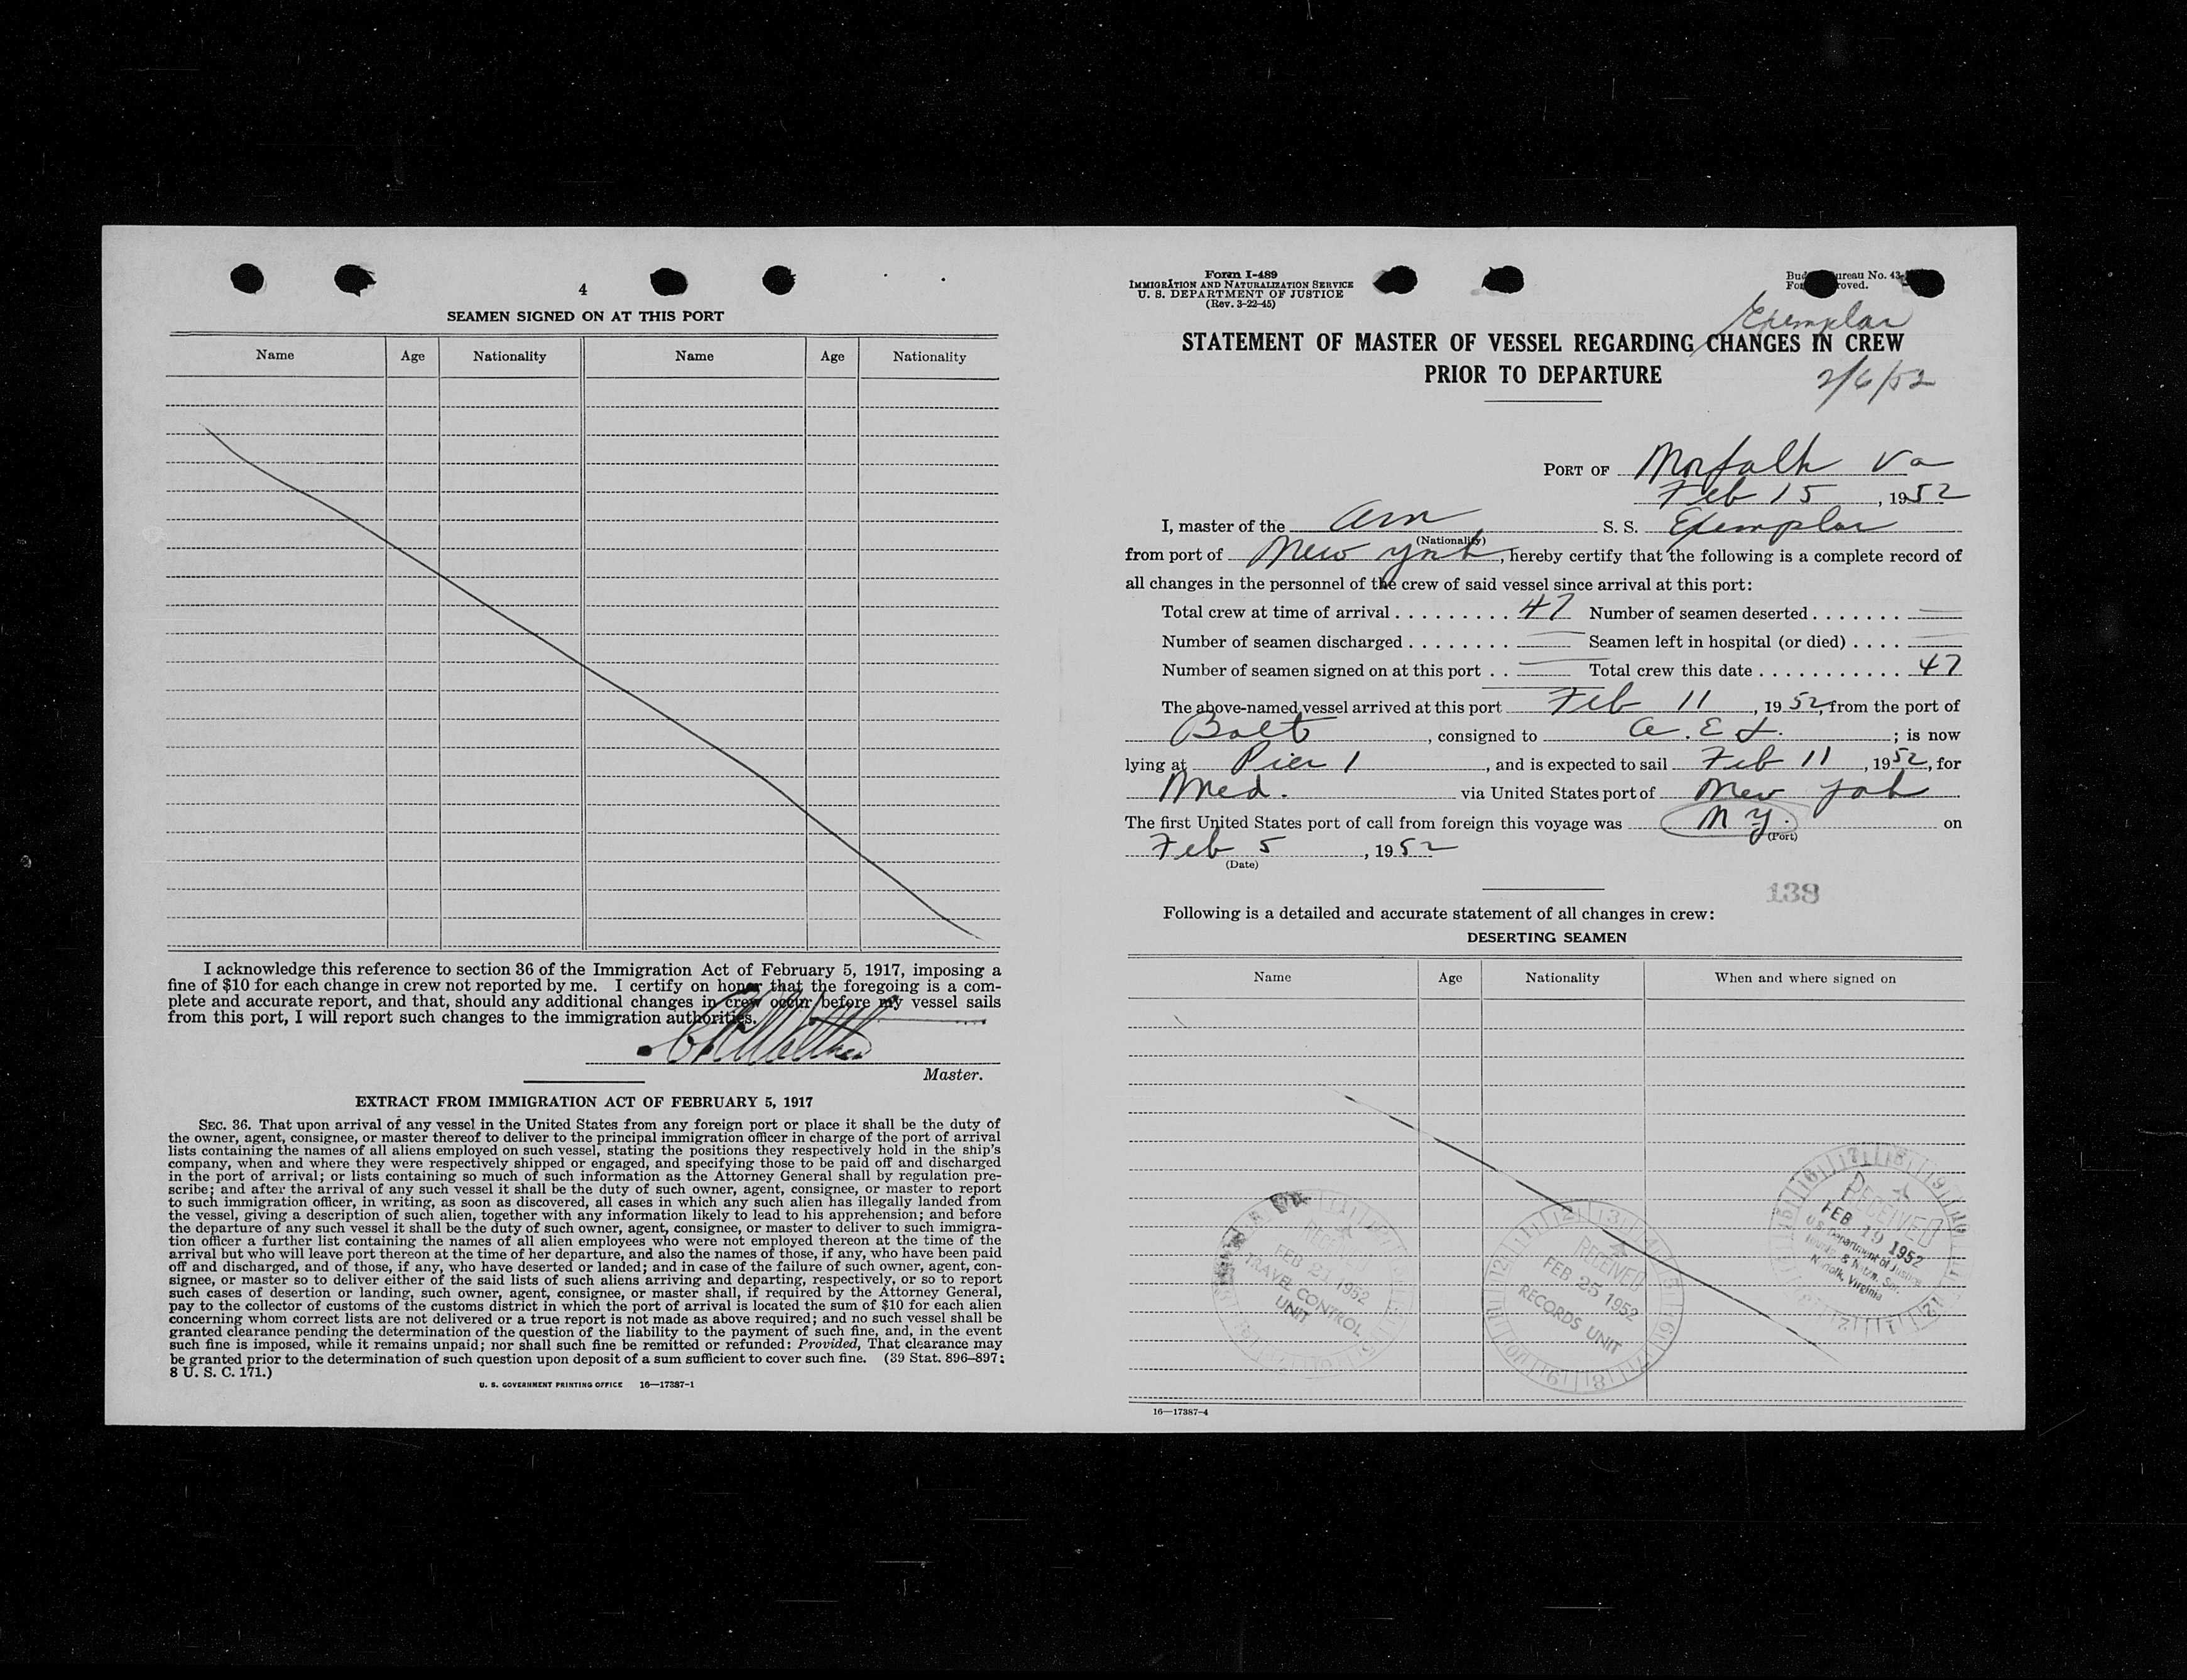 4
SEAMEN SIGNED ON AT THIS PORT
Name Age Nationality Name Age Nationality
I acknowledge this reference to section 36 of the Immigration Act of February 5, 1917, imposing a
fine of $10 for each change in crew not reported by me. I certify on honor that the foregoing is a com-
plete and accurate report, and that, should any additional changes in crew occur before my vessel sails
from this port, I will report such changes to the immigration authorities.
Master.
EXTRACT FROM IMMIGRATION ACT OF FEBRUARY 5, 1917
SEC. 36. That upon arrival of any vessel in the United States from any foreign port or place it shall be the duty of
the owner, agent, consignee, or master thereof to deliver to the principal immigration officer in charge of the port of arrival
lists containing the names of all aliens employed on such vessel, stating the positions they respectively hold in the ship's
company, when and where they were respectively shipped or engaged, and specifying those to be paid off and discharged
in the port of arrival; or lists containing so much of such information as the Attorney General shall by regulation pre-
scribe; and after the arrival of any such vessel it shall be the duty of such owner, agent, consignee, or master to report
to such immigration officer, in writing, as soon as discovered, all cases in which any such alien has illegally landed from
the vessel, giving a description of such alien, together with any information likely to lead to his apprehension; and before
the departure of any such vessel it shall be the duty of such owner, agent, consignee, or master to deliver to such immigra-
tion officer a further list containing the names of all alien employees who were not employed thereon at the time of the
arrival but who will leave port thereon at the time of her departure, and also the names of those, if any, who have been paid
off and discharged, and of those, if any, who have deserted or landed; and in case of the failure of such owner, agent, con-
signee, or master so to deliver either of the said lists of such aliens arriving and departing, respectively, or so to report
such cases of desertion or landing, such owner, agent, consignee, or master shall, if required by the Attorney General,
pay to the collector of customs of the customs district in which the port of arrival is located the sum of $10 for each alien
concerning whom correct lists are not delivered or a true report is not made as above required; and no such vessel shall be
granted clearance pending the determination of the question of the liability to the payment of such fine, and, in the event
such fine is imposed, while it remains unpaid; nor shall such fine be remitted or refunded: Provided, That clearance may
be granted prior to the determination of such question upon deposit of a sum sufficient to cover such fine. (39 Stat. 896–897;
8 U. S. C. 171.)
U. S. GOVERNMENT PRINTING OFFICE 16—17387-1
Form I-489
IMMIGRATION AND NATURALIZATION SERVICE
U. S. DEPARTMENT OF JUSTICE
(Rev. 3-22-45)
Bureau No. 43
Exemplar
STATEMENT OF MASTER OF VESSEL REGARDING CHANGES IN CREW
PRIOR TO DEPARTURE
2/6/52
PORT OF Norfolk Va
Feb 15, 1952
I, master of the Am S. S. Exemplar
(Nationality)
from port of New York, hereby certify that the following is a complete record of
all changes in the personnel of the crew of said vessel since arrival at this port:
Total crew at time of arrival 47 Number of seamen deserted
Number of seamen discharged Seamen left in hospital (or died)
Number of seamen signed on at this port Total crew this date 47
The above-named vessel arrived at this port Feb 11, 1952, from the port of
Balt, consigned to A. E. L.; is now
lying at Pier 1, and is expected to sail Feb 11, 1952, for
Med. via United States port of New York
The first United States port of call from foreign this voyage was N Y. on
(Port)
Feb 5, 1952
(Date)
138
Following is a detailed and accurate statement of all changes in crew:
DESERTING SEAMEN
Name Age Nationality When and where signed on
RECEIVED
FEB 19 1952
U.S. Department of Justice
Immig. & Natzn. Ser.
Norfolk, Virginia
FEB 21 1952
TRAVEL CONTROL
UNIT
RECEIVED
FEB 25 1952
RECORDS UNIT
16—17387-4